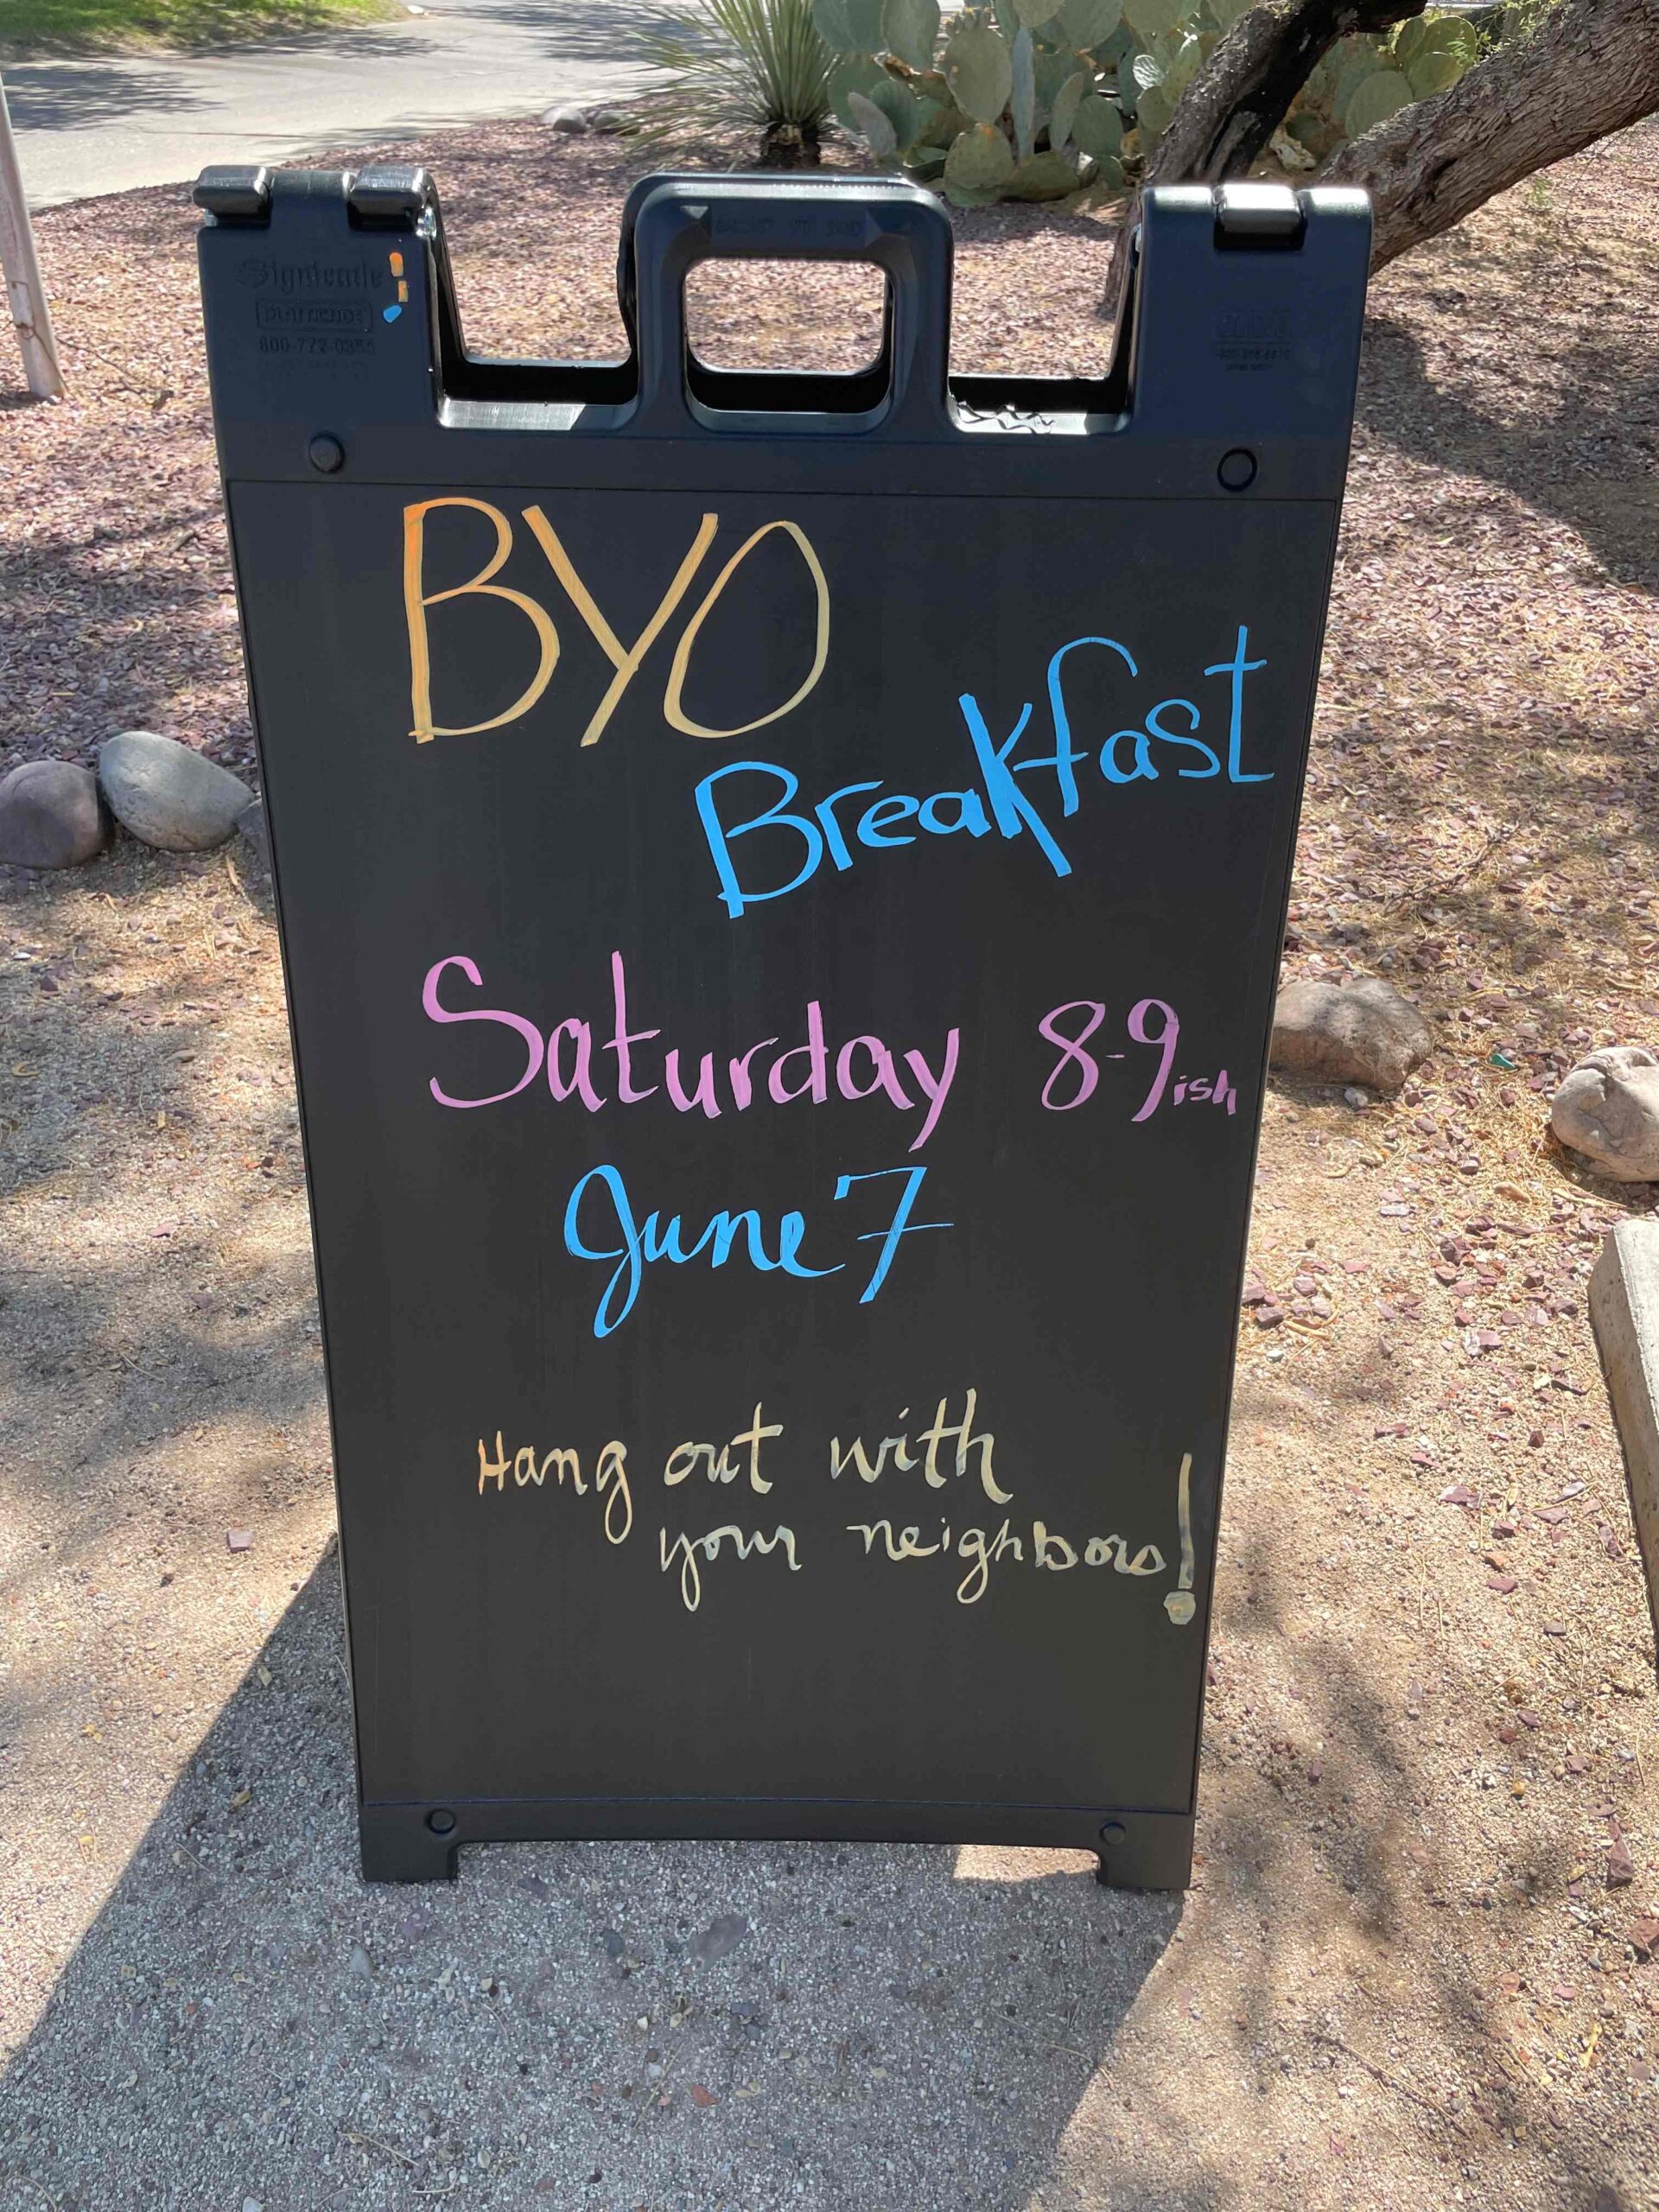 Signicade
PLASTICADE
800-772-0355
BYO
Breakfast
Saturday 8-9ish
June 7
Hang out with
your neighbors!